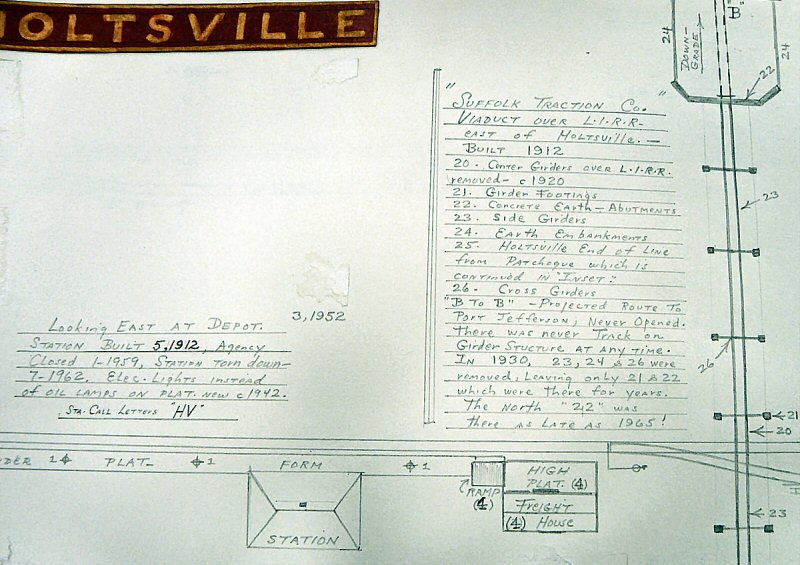 HOLTSVILLE
"B"
24
DOWN-
GRADE
24
22
"SUFFOLK TRACTION CO."
VIADUCT OVER L.I.R.R.
EAST OF HOLTSVILLE. —
BUILT 1912
20. Center Girders over L.I.R.R.
removed - c1920
21. Girder Footings
22. Concrete Earth - Abutments
23. Side Girders
24. Earth Embankments
25. Holtsville End of Line
from Patchogue which is
continued in "Inset".
26. Cross Girders
"B to B" - Projected Route to
Port Jefferson; Never Opened.
There was never Track on
Girder Stucture at any time.
In 1930, 23, 24 & 26 were
removed, Leaving only 21 & 22
which were there for years.
The North "22" was
there as late as 1965!
23
26
21
20
23
3,1952
Looking East at Depot.
Station Built 5,1912, Agency
Closed 1-1959, Station torn down-
7-1962. Elec. Lights instead
of oil lamps on plat. new c1942.
Sta. Call Letters "HV"
DER 1 PLAT- 1 FORM 1
RAMP
(4)
HIGH
PLAT. (4)
FREIGHT
(4) House
STATION